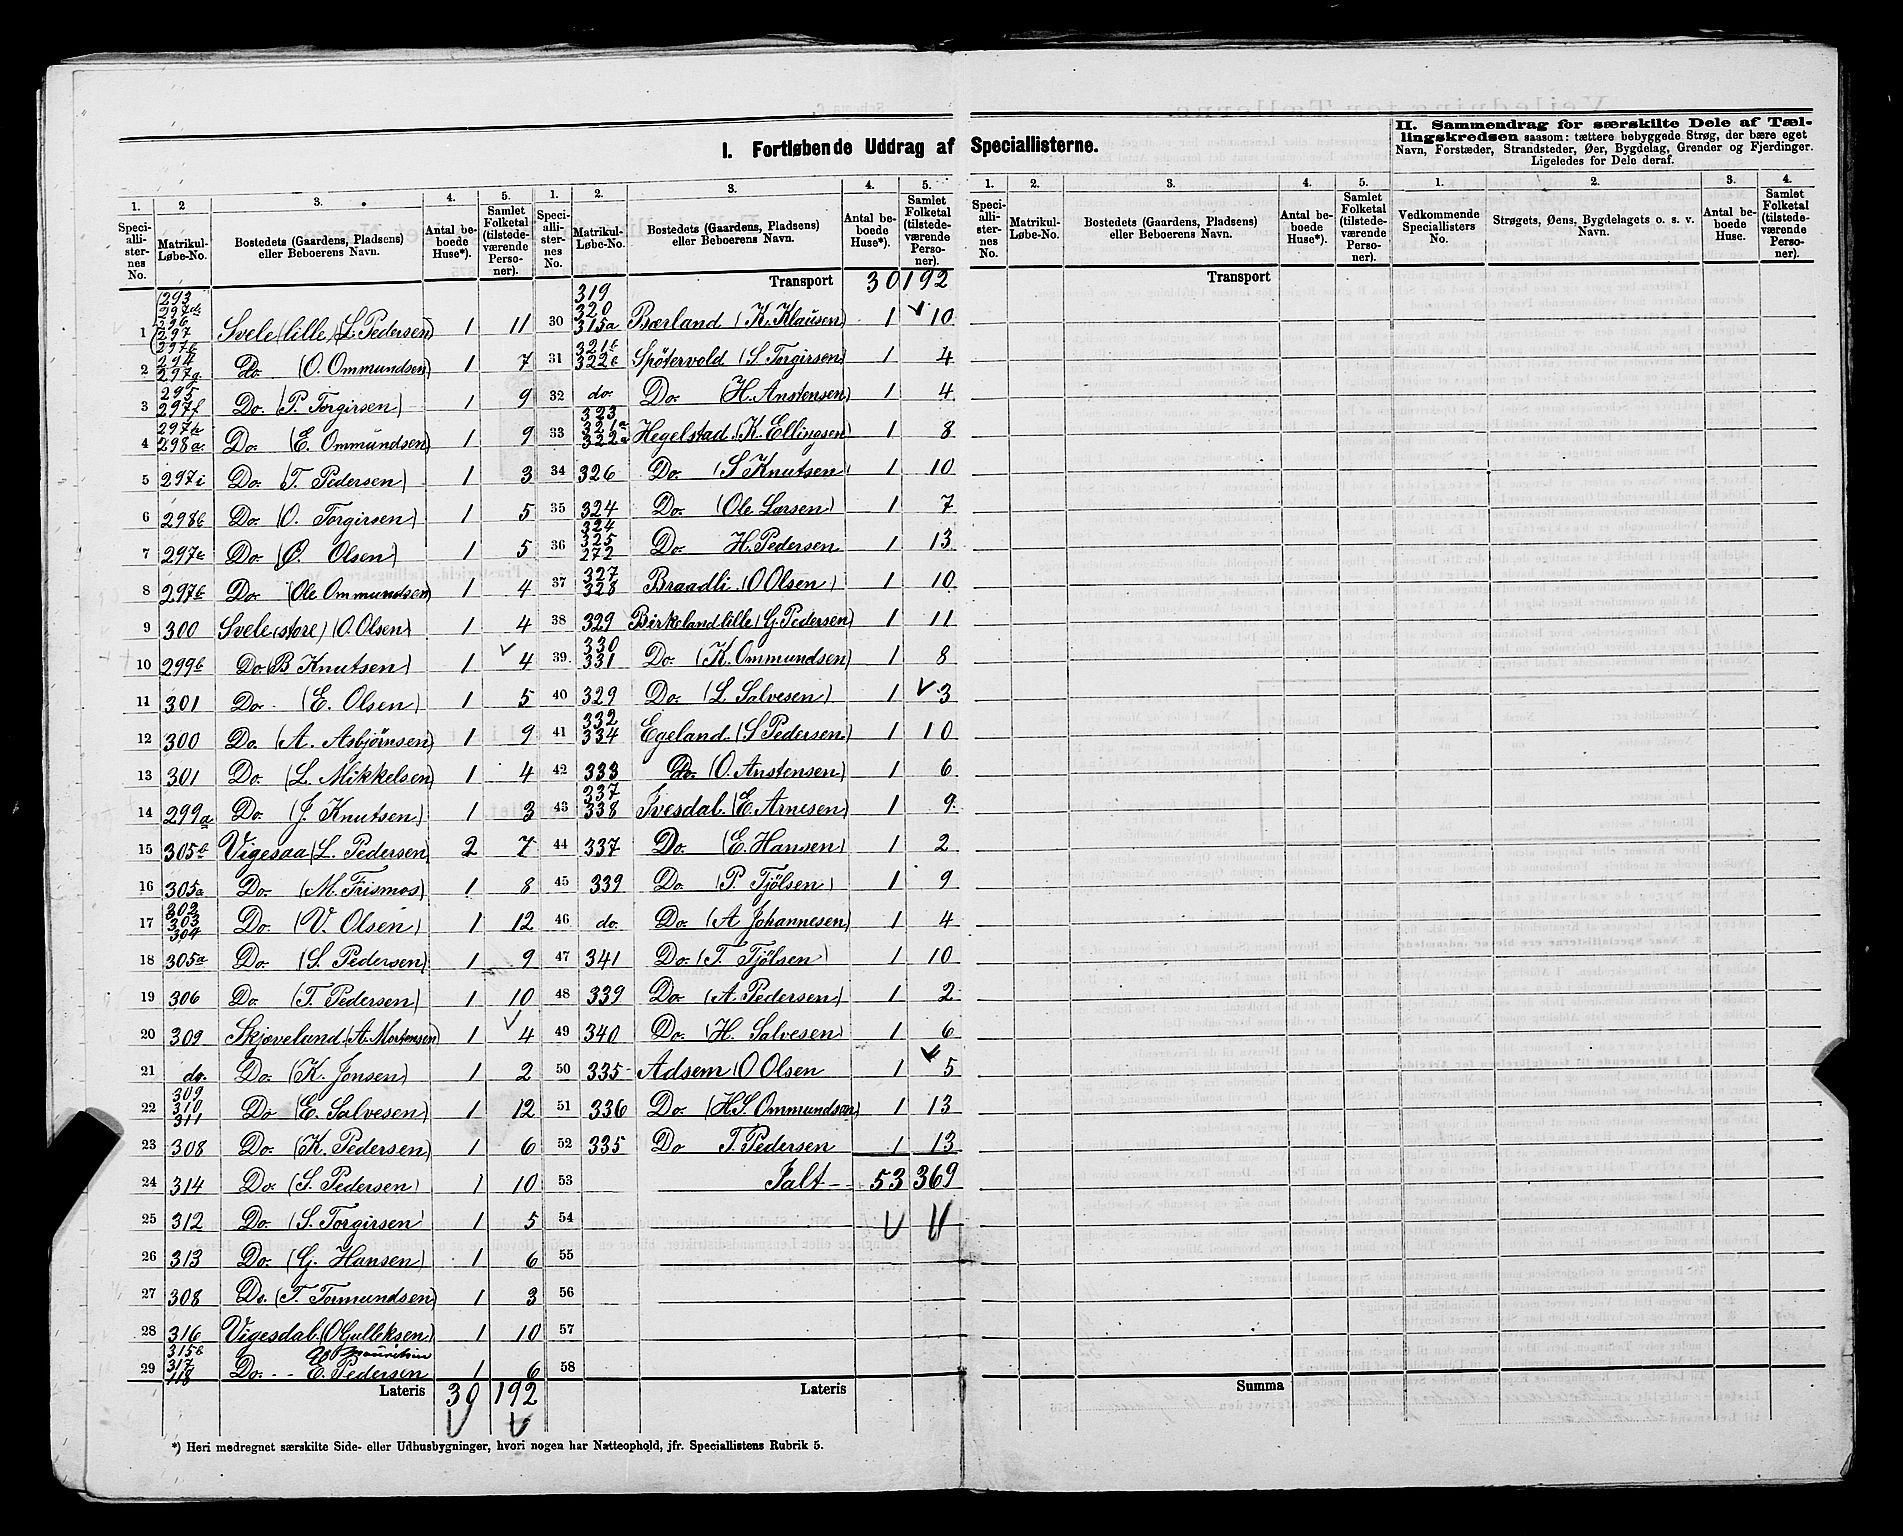 I. Fortløbende Uddrag af Speciallisterne.
II. Sammendrag for særskilte Dele af Tællingskredsen saasom: tættere bebyggede Strøg, der bære eget
Navn, Forstæder, Strandsteder, Øer, Bygdelag, Grender og Fjerdinger.
Ligeledes for Dele deraf.
1. Speciallisternes No. | 2 Matrikul-Løbe-No. | 3. Bostedets (Gaardens, Pladsens) eller Beboerens Navn. | 4. Antal beboede Huse*). | 5. Samlet Folketal (tilstedeværende Personer).
1 293 297d 296 297 297b Svele (lille) (L. Pedersen) 1 11
2 294 297g do. (O. Ommundsen) 1 7
3 295 297f Do. (P. Torgirsen) 1 9
4 297h 298a Do. (E. Ommundsen) 1 9
5 297i Do. (T. Pedersen) 1 3
6 298b Do. (O. Torgirsen) 1 5
7 297e Do. (O. Olsen) 1 5
8 297c Do. (Ole Ommundsen) 1 4
9 300 Svele (store) (O. Olsen) 1 4
10 299b Do. (B Knutsen) 1 4
11 301 Do. (E. Olsen) 1 5
12 300 Do. (A. Asbjørnsen) 1 9
13 301 Do. (L. Mikkelsen) 1 4
14 299a Do. (J. Knutsen) 1 3
15 305b Vigesaa (L. Pedersen. 2 7
16 305a Do. (M. Trismos) 1 8
17 302 303 304 Do. (V. Olsen) 1 12
18 305a Do. (S. Pedersen) 1 9
19 306 Do. (T. Pedersen) 1 10
20 309 Skjæveland (A. Mortensen) 1 4
21 do. Do. (K. Jonsen) 1 2
22 309 310 311 Do (E. Salvesen) 1 12
23 308 Do. (K. Pedersen) 1 6
24 314 Do. (S. Pedersen) 1 10
25 312 Do. (S. Torgirsen) 1 5
26 313 Do. (G. Hansen) 1 6
27 308 Do. (T. Tormundsen) 1 3
28 316 Vigesdal (O Gulleksen) 1 10
29 315b 317 118 Do. - - E. Pedersen 1 6
Lateris 30 192
*) Heri medregnet særskilte Side- eller Udhusbygninger, hvori nogen har Natteophold, jfr. Speciallistens Rubrik 5.
1. Speciallisternes No. | 2. Matrikul-Løbe-No. | 3. Bostedets (Gaardens, Pladsens) eller Beboerens Navn. | 4. Antal beboede Huse*). | 5. Samlet Folketal (tilstedeværende Personer).
Transport 30 192
30 319 320 315a Bærland (K. Klausen) 1 10
31 321b 322b Spötervold (S. Torgirsen) 1 4
32 do. Do. (H. Anstensen) 1 4
33 323 321a 322a Hegelstad (K. Ellingsen) 1 8
34 326 Do. (S Knutsen) 1 10
35 324 Do. (Ole Larsen) 1 7
36 324 325 272 Do. H. Pedersen 1 13
37 327 328 Braadli (O Olsen) 1 10
38 329 Birkeland lille (G. Pedersen) 1 11
39. 330 331 Do. (K. Ommundsen) 1 8
40 329 Do. (L. Salvesen) 1 3
41 332 334 Egeland (S Pedersen) 1 10
42 333 do. (O. Anstensen) 1 6
43 337 338 Ivesdal (E. Arnesen) 1 9
44 337 Do. (E. Hansen) 1 2
45 339 Do (P. Tjölsen) 1 9
46 do. Do. (A Johannesen) 1 4
47 341 Do. (T. Tjölsen) 1 10
48 339 Do (A Pedersen) 1 2
49 340 Do. (H. Salvesen) 1 6
50 335 Adsem (O Olsen 1 5
51 336 Do. (H. S. Ommundsen) 1 13
52 335 Do T. Pedersen 1 13
53 Ialt - - 53 369
54
55
56
57
58
Lateris
1. Speciallisternes No. | 2. Matrikul-Løbe-No. | 3. Bostedets (Gaardens, Pladsens) eller Beboerens Navn. | 4. Antal beboede Huse*). | 5. Samlet Folketal (tilstedeværende Personer).
Transport
Summa
1. Vedkommende Speciallisters No. | 2. Strøgets, Øens, Bygdelagets o. s. v. Navn. | 3. Antal beboede Huse. | 4. Samlet Folketal (tilstedeværende Personer).